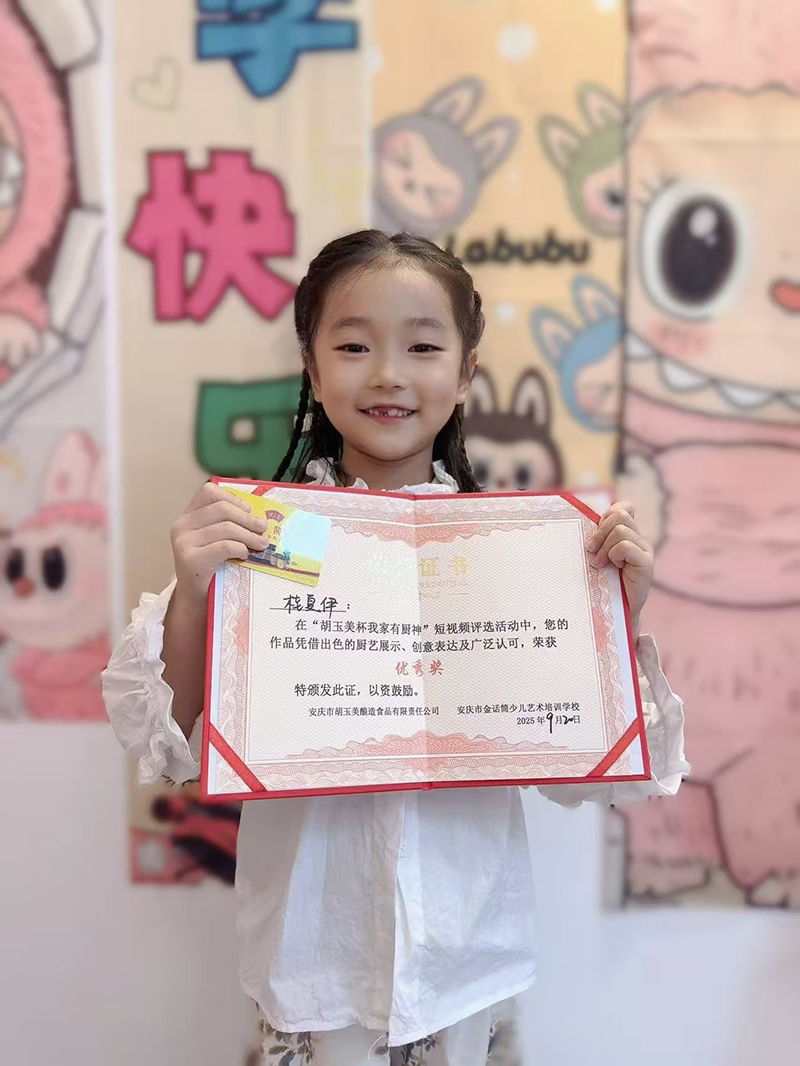 学
快
乐
Labubu
证书
桂夏伊：
在“胡玉美杯我家有厨神”短视频评选活动中，您的
作品凭借出色的厨艺展示、创意表达及广泛认可，荣获
优秀奖
特颁发此证，以资鼓励。
安庆市胡玉美酿造食品有限责任公司 安庆市金话筒少儿艺术培训学校
2025年9月20日